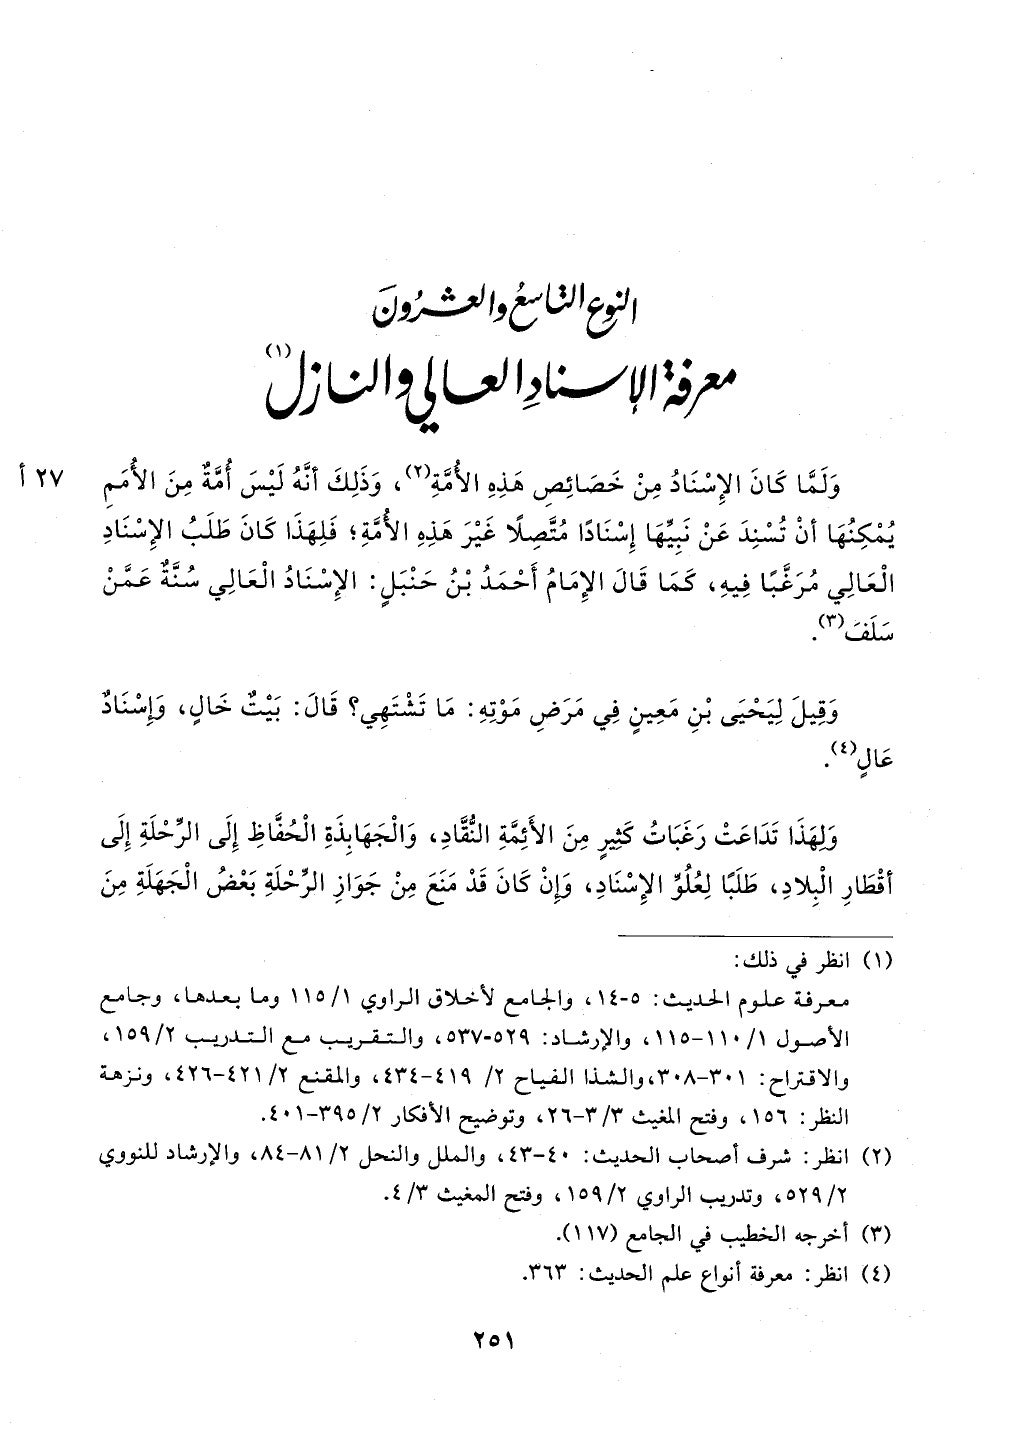 النوع التاسعُ والعشرُونَ
معرفة الإسنادِ العالي والنازل(١)
وَلَمَّا كَانَ الإِسْنَادُ مِنْ خَصَائِصِ هَذِهِ الأُمَّةِ(٢)، وَذَلِكَ أنَّهُ لَيْسَ أُمَّةٌ مِنَ الأُمَمِ ٢٧ أ
يُمْكِنُهَا أنْ تُسْنِدَ عَنْ نَبِيِّهَا إِسْنَادًا مُتَّصِلًا غَيْرَ هَذِهِ الأُمَّةِ؛ فَلِهَذَا كَانَ طَلَبُ الإِسْنَادِ
الْعَالِي مُرَغَّبًا فِيهِ، كَمَا قَالَ الإِمَامُ أَحْمَدُ بْنُ حَنْبَلٍ: الإِسْنَادُ الْعَالِي سُنَّةٌ عَمَّنْ
سَلَفَ(٣).
وَقِيلَ لِيَحْيَى بْنِ مَعِينٍ فِي مَرَضِ مَوْتِهِ: مَا تَشْتَهِي؟ قَالَ: بَيْتٌ خَالٍ، وَإِسْنَادٌ
عَالٍ(٤).
وَلِهَذَا تَدَاعَتْ رَغَبَاتُ كَثِيرٍ مِنَ الأَئِمَّةِ النُّقَّادِ، وَالْجَهَابِذَةِ الْحُفَّاظِ إِلَى الرِّحْلَةِ إِلَى
أقْطَارِ الْبِلادِ، طَلَبًا لِعُلُوِّ الإِسْنَادِ، وَإِنْ كَانَ قَدْ مَنَعَ مِنْ جَوَازِ الرِّحْلَةِ بَعْضُ الْجَهَلَةِ مِنَ
(١) انظر في ذلك:
معرفة علوم الحديث: ٥-١٤، والجامع لأخلاق الراوي ١/ ١١٥ وما بعدها، وجامع
الأصول ١/ ١١٠-١١٥، والإرشاد: ٥٢٩-٥٣٧، والتقريب مع التدريب ٢/ ١٥٩،
والاقتراح: ٣٠١-٣٠٨،والشذا الفياح ٢/ ٤١٩-٤٣٤، والمقنع ٢/ ٤٢١-٤٢٦، ونزهة
النظر: ١٥٦، وفتح المغيث ٣/ ٣-٢٦، وتوضيح الأفكار ٢/ ٣٩٥-٤٠١.
(٢) انظر: شرف أصحاب الحديث: ٤٠-٤٣، والملل والنحل ٢/ ٨١-٨٤، والإرشاد للنووي
٢/ ٥٢٩، وتدريب الراوي ٢/ ١٥٩، وفتح المغيث ٣/ ٤.
(٣) أخرجه الخطيب في الجامع (١١٧).
(٤) انظر: معرفة أنواع علم الحديث: ٣٦٣.
٢٥١